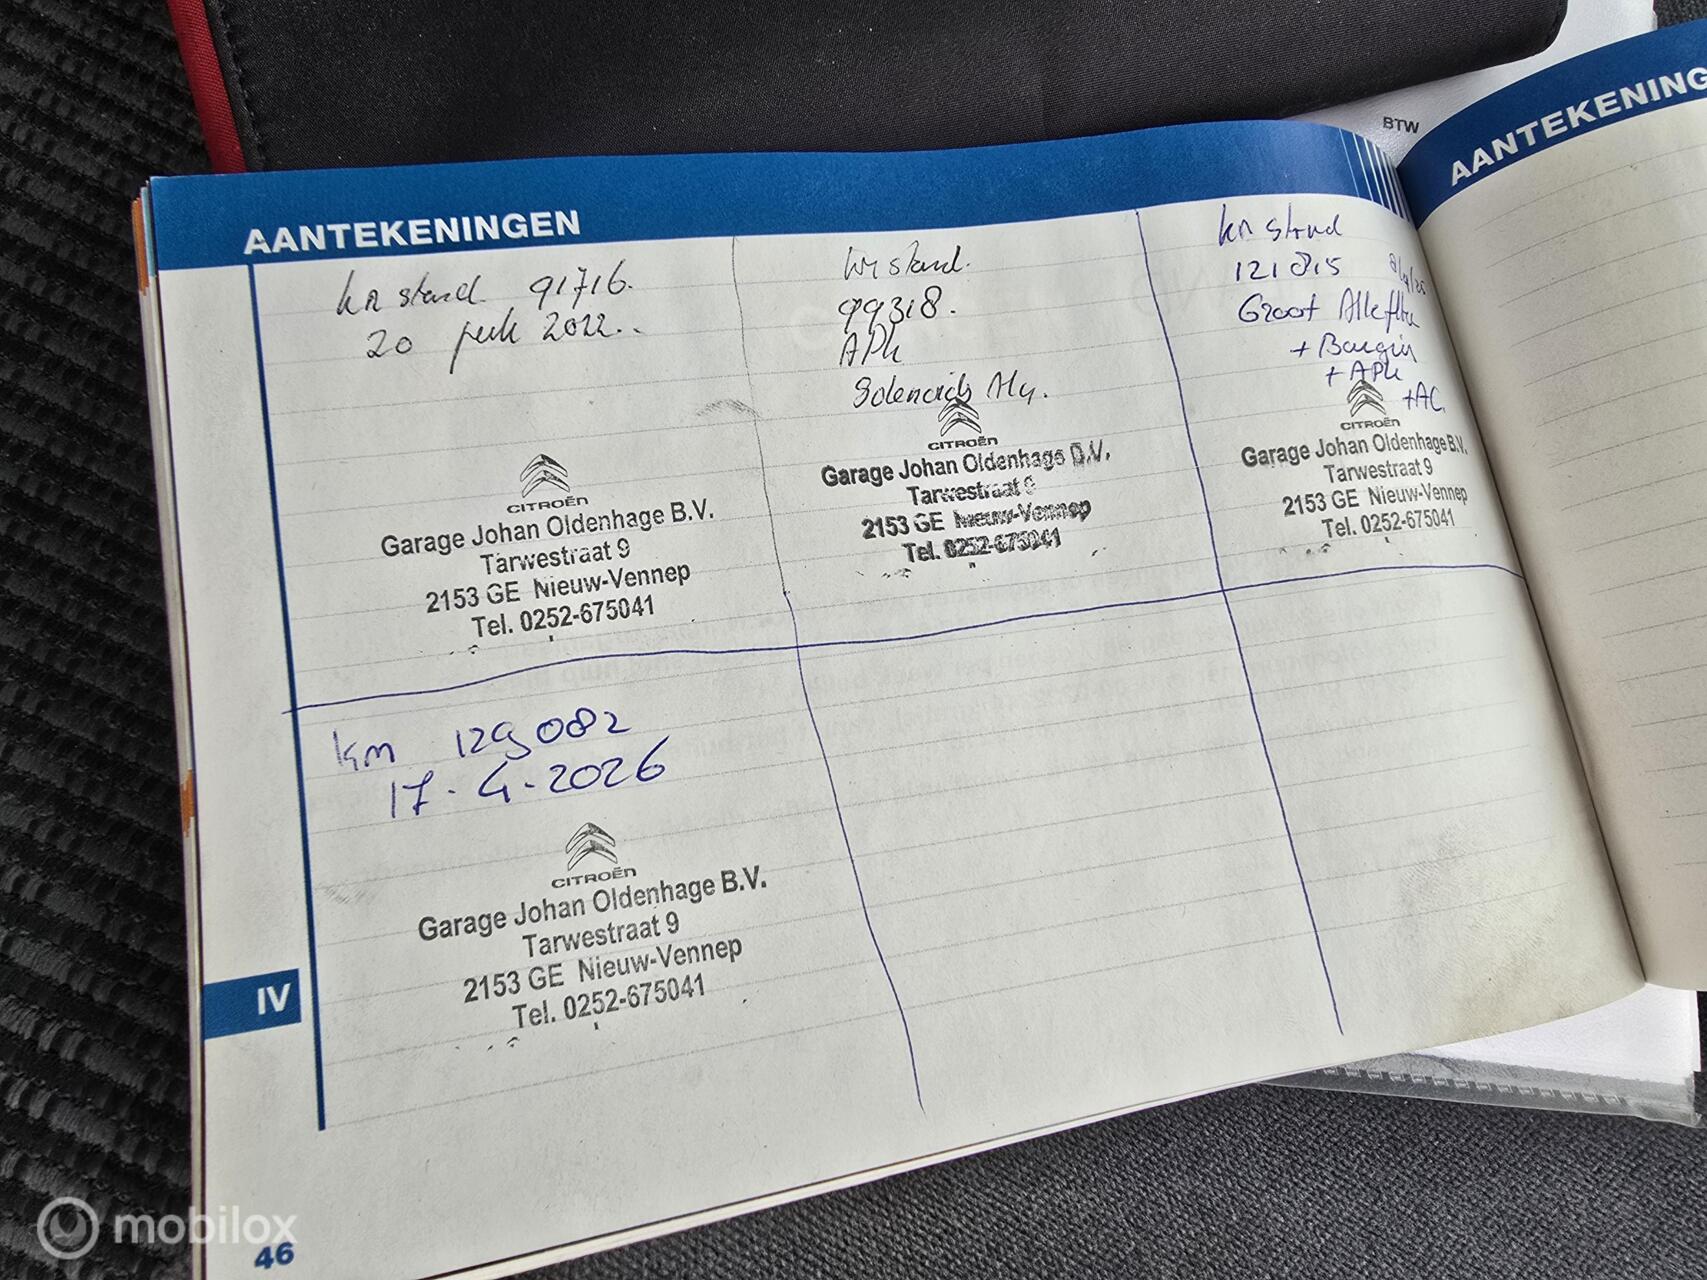 BTW
AANTEKENINGEN
AANTEKENING
km stand 91716.
20 2022..
CITROËN
Garage Johan Oldenhage B.V.
Tarwestraat 9
2153 GE Nieuw-Vennep
Tel. 0252-675041
km stand.
99318.
APK
Solenoids
CITROËN
Garage Johan Oldenhage B.V.
Tarwestraat 9
2153 GE Nieuw-Vennep
Tel. 0252-675041
km stand
121815
Groot
+ APK
+AC
CITROËN
Garage Johan Oldenhage B.V.
Tarwestraat 9
2153 GE Nieuw-Vennep
Tel. 0252-675041
km 129082
17-4-2026
CITROËN
Garage Johan Oldenhage B.V.
Tarwestraat 9
2153 GE Nieuw-Vennep
Tel. 0252-675041
IV
46
mobilox